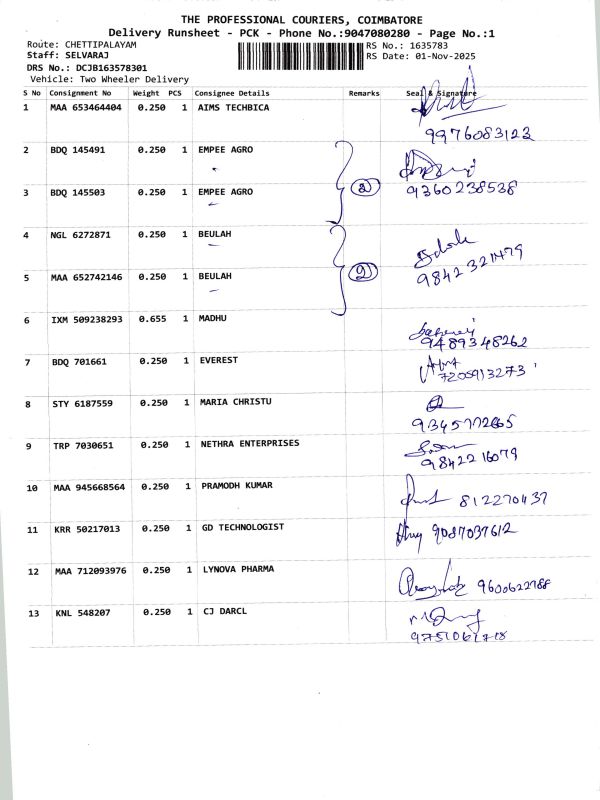 THE PROFESSIONAL COURIERS, COIMBATORE
Delivery Runsheet - PCK - Phone No.:9047080280 - Page No.:1
Route: CHETTIPALAYAM RS No.: 1635783
Staff: SELVARAJ RS Date: 01-Nov-2025
DRS No.: DCJB163578301
Vehicle: Two Wheeler Delivery
S No Consignment No Weight PCS Consignee Details Remarks Seal & Signature
1 MAA 653464404 0.250 1 AIMS TECHBICA
9976083123
2 BDQ 145491 0.250 1 EMPEE AGRO
3 BDQ 145503 0.250 1 EMPEE AGRO 2 9360238538
4 NGL 6272871 0.250 1 BEULAH
5 MAA 652742146 0.250 1 BEULAH 2 9842321479
6 IXM 509238293 0.655 1 MADHU
9489348262
7 BDQ 701661 0.250 1 EVEREST
7205913273
8 STY 6187559 0.250 1 MARIA CHRISTU
9 TRP 7030651 0.250 1 NETHRA ENTERPRISES
9842216079
10 MAA 945668564 0.250 1 PRAMODH KUMAR
11 KRR 50217013 0.250 1 GD TECHNOLOGIST 9087037612
12 MAA 712093976 0.250 1 LYNOVA PHARMA
9600622788
13 KNL 548207 0.250 1 CJ DARCL